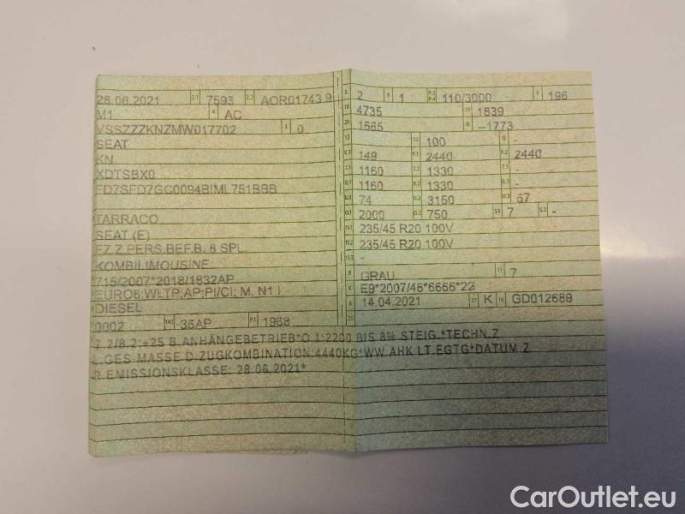 28.06.2021 7593 AOR01743 9
M1 AC
VSSZZZKNZMW017702 0
SEAT
KN
XDTSBX0
FD7SFD7GC0094BIML751BBB
TARRACO
SEAT (E)
FZ.Z.PERS.BEF.B. 8 SPL.
KOMBILIMOUSINE
715/2007*2018/1832AP
EURO6;WLTP;AP;PI/CI; M, N1 I
DIESEL
0002 36AP 1968
2 1 110/3000 196
4735 1839
1565 -1773
100 -
149 2440 2440
1160 1330 -
1160 1330 -
74 3150 67
2000 750 7 -
235/45 R20 100V
235/45 R20 100V
-
-
GRAU 7
E9*2007/46*6666*22
14.04.2021 K GD012689
Z.2/8.2:+25 B.ANHÄNGEBETRIEB*O.1:2200 BIS 8% STEIG.*TECHN.Z
L.GES.MASSE D.ZUGKOMBINATION:4440KG*WW.AHK LT.EGTG*DATUM Z
R.EMISSIONSKLASSE: 28.06.2021*
CarOutlet.eu